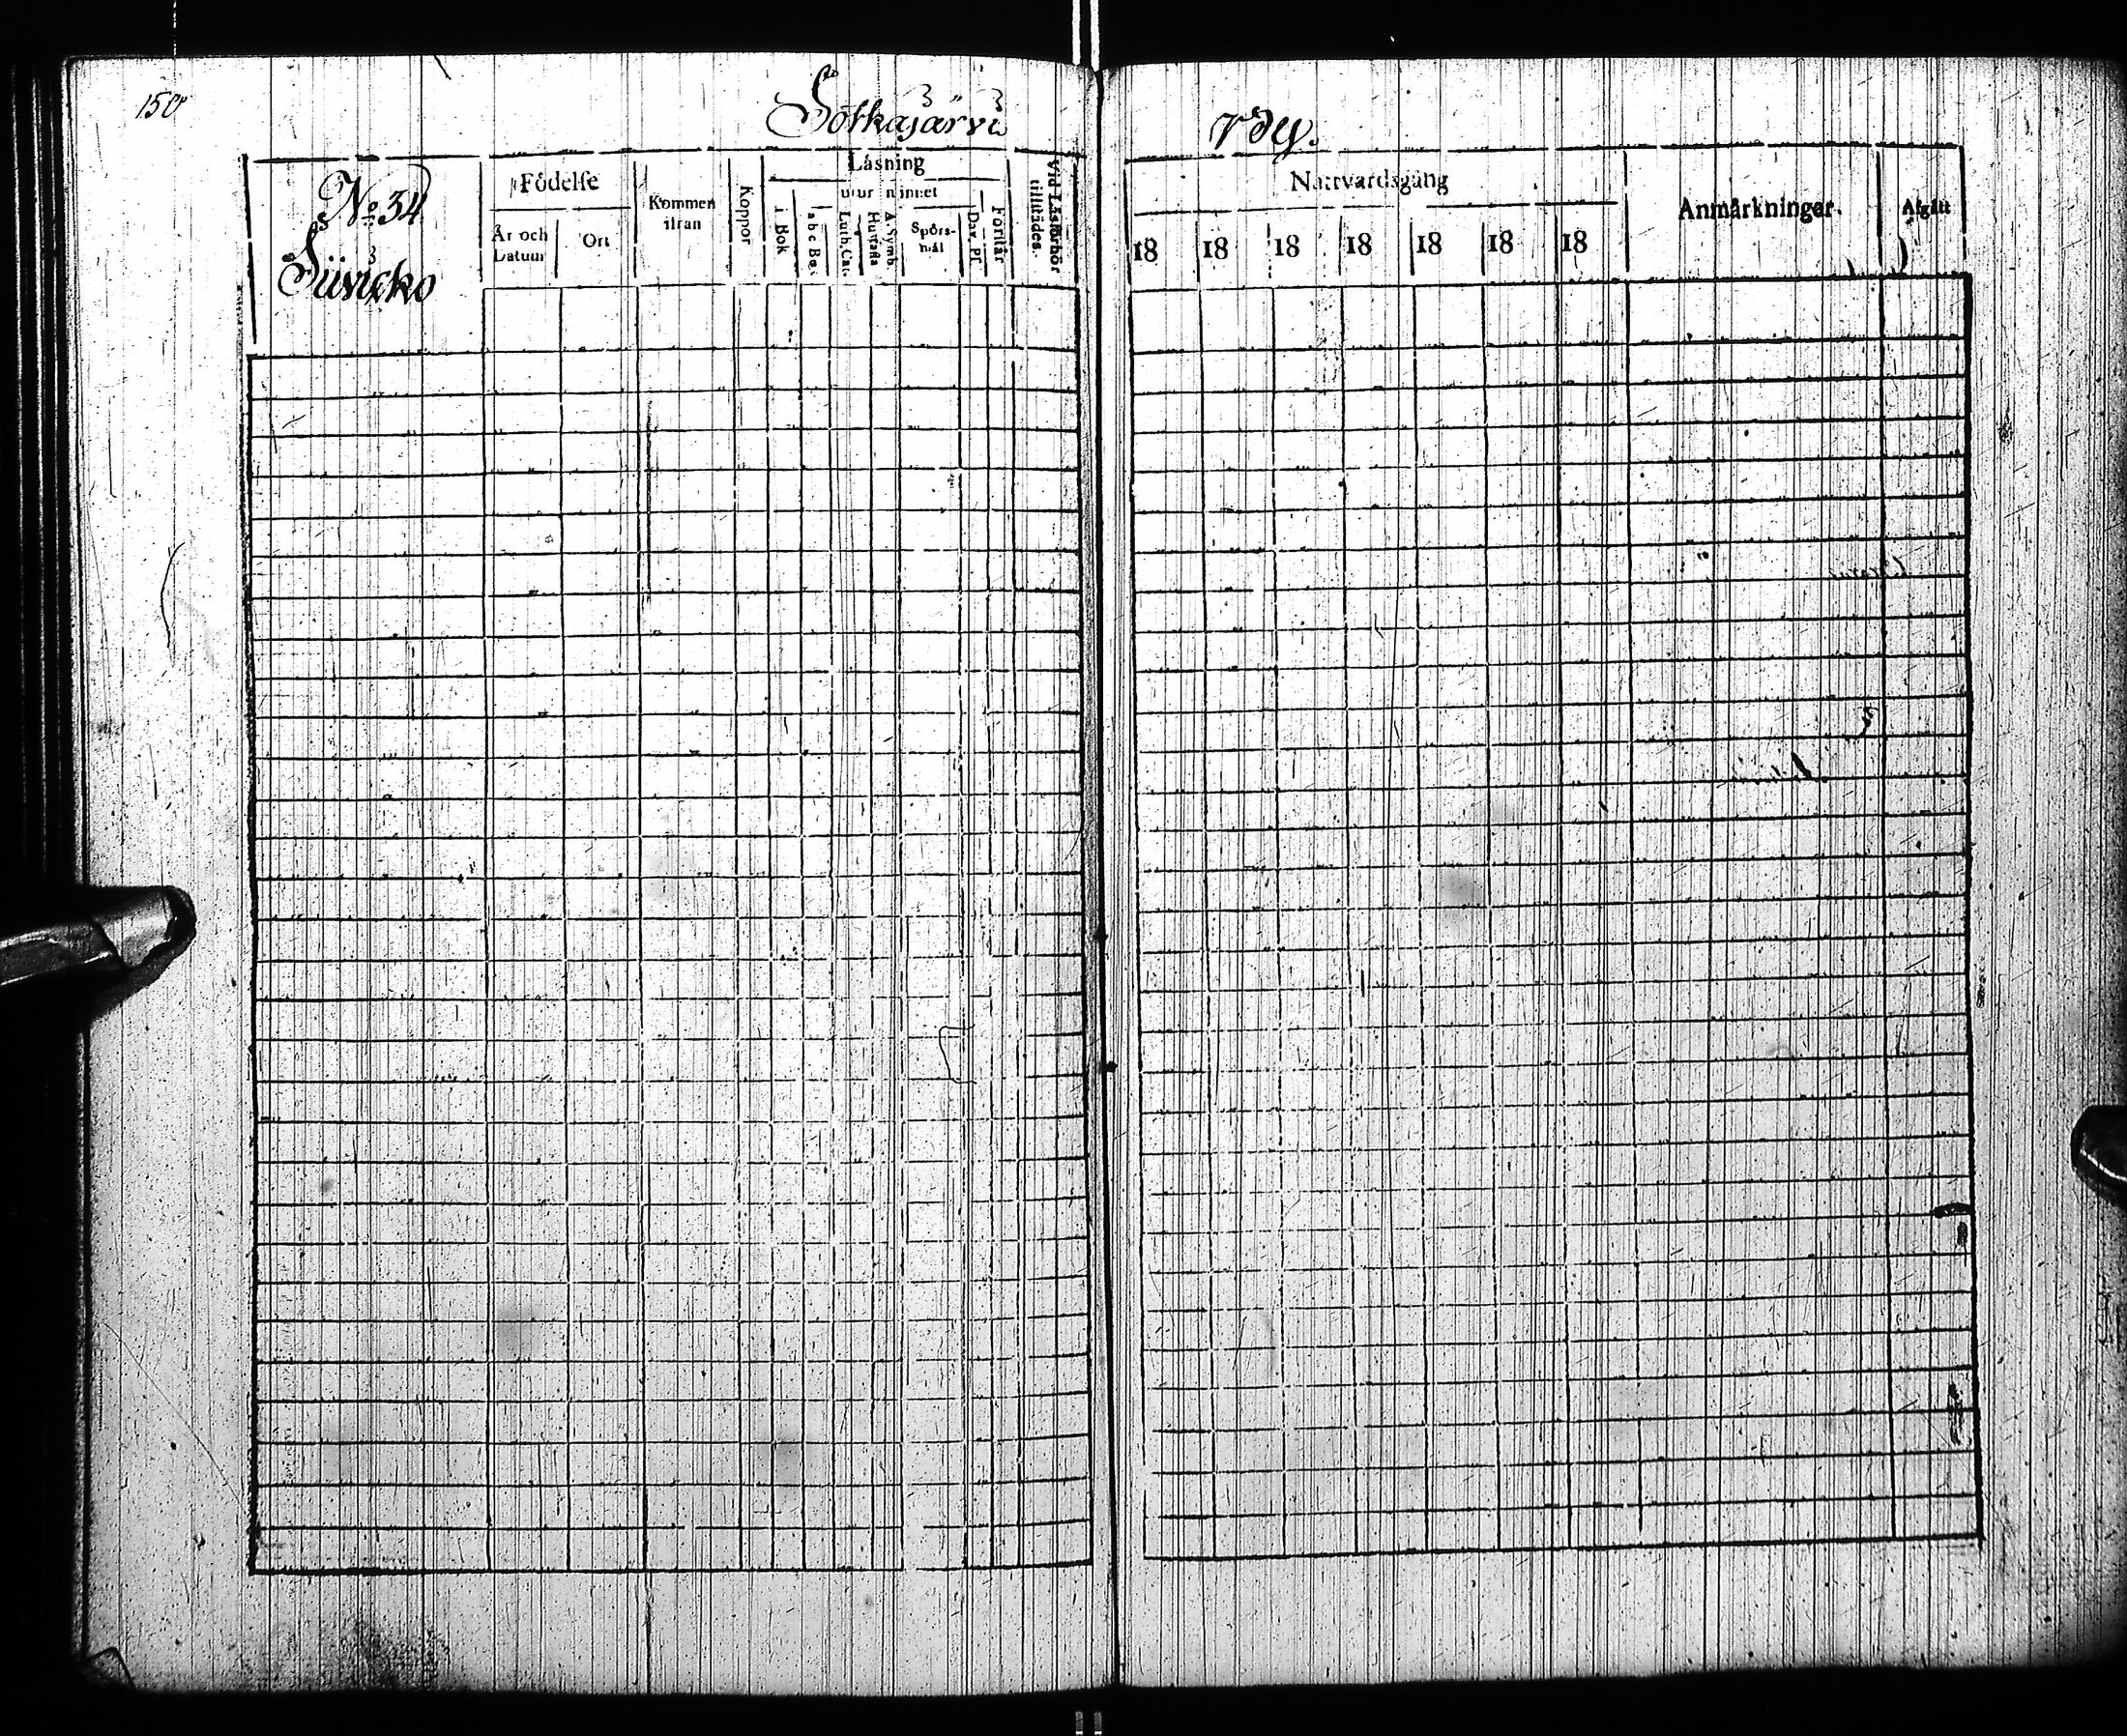 150
Sotkajärvi
No 34
Födelse
År och Datum
Ort
Kommen ifran
Koppor
Läsning
utur minnet
i Bok
abc Bo.
Luth. Cat.
Hustafla
A. Symb.
Spörs-mål
Dav. Ps.
Förstår
Vid Läsförhör tillträdes.
Nattvardsgång
18 18 18 18 18 18 18
Anmärkningar.
Afgått